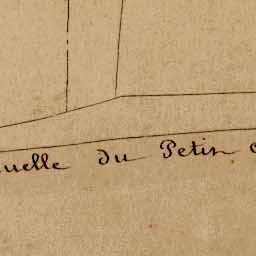 uelle du Petin